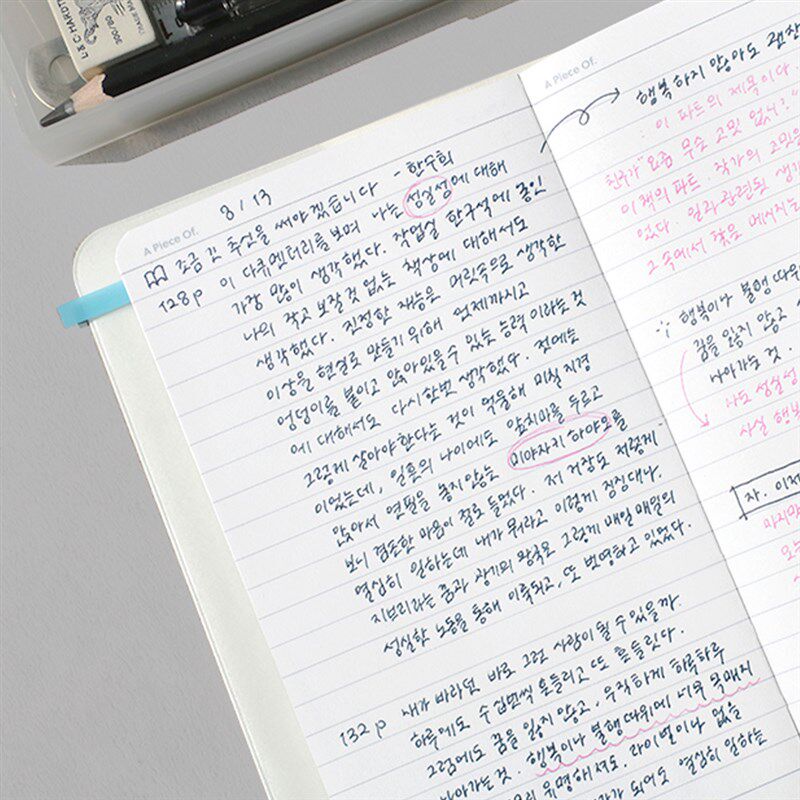 L & C HARDT
300/80
A Piece Of.
8/13
조금 긴 추신을 써야겠습니다 - 한수희
128p 이 다큐멘터리를 보며 나는 성실성에 대해
가장 많이 생각했다. 작업실 한구석에 놓인
나의 작고 보잘것 없는 책상에 대해서도
생각했다. 진정한 재능은 머릿속으로 생각한
이상을 현실로 만들기 위해 언제까지고
엉덩이를 붙이고 앉아있을 수 있는 능력이라는 것
에 대해서도 다시한번 생각했다. 전에는
그렇게 살아야한다는 것이 억울해 미칠 지경
이었는데, 일흔의 나이에도 앞치마를 두르고
앉아서 연필을 놓지않는 미야자키 하야오를
보니 겸손한 마음이 절로 들었다. 저 거장도 저렇게
열심히 일하는데 내가 뭐라고 이렇게 징징대나.
지브리라는 꿈과 광기의 왕국은 그렇게 매일매일의
성실한 노동을 통해 이룩되고, 또 번영하고 있었다.
132p 내가 바라던 바로 그런 사람이 될 수 있을까.
하루에도 수십번씩 흔들리고 또 흔들린다.
그럼에도 꿈을 잃지 않고, 우직하게 하루하루
나아가는 것. 행복이나 불행따위에 너무 목매지
유명해서도. 라이벌이나 없을
가 되어도 열심히 일하는
A Piece Of.
행복하지 않아도 괜찮
이 파트의 제목이다.
친구가 "요즘 무슨 고민 없니?"
이 책의 파트, 작가의 고민은
없다. 일과 관련된 생각
그 속에서 찾은 메시지는
행복이나 불행 따위
꿈을 잃지 않고
나아가는 것.
나도 성실성
사실 행복
자. 이제
마지막